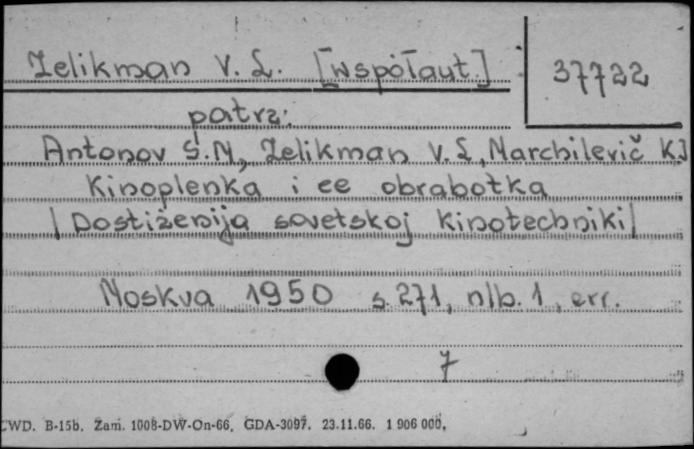 Zelikman V. L. [współaut.]
37722
patrz:
Antonov S.M., Zelikman V.L., Marchilevič K.I
Kinoplenka i ee obrabotka
/Dostiženija sovetskoj kinotechniki/
Moskva 1950 s. 271, nlb. 1, err.
7
CWD. B-15b. Zam. 1008-DW-On-66. GDA-3097. 23.11.66. 1 906 000.